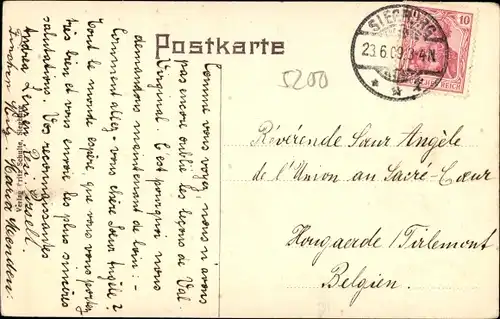 Postkarte
SIEGBURG
23.6.09.
4N
10
5200
Comme vous voyez, nous n'avons
pas encore oublié les leçons de Val
Virginal. C'est pourquoi nous
demandons maintenant de loin: -
Comment allez-vous chère Sœur Angèle?
Tout le monde espère que vous vous portez
très bien et vous envoie les plus sincères
salutations. Vos reconnaissantes
Andrea
Révérende Sœur Angèle
de l'Union au Sacré-Cœur
Hougaerde / Tirlemont
Belgien.